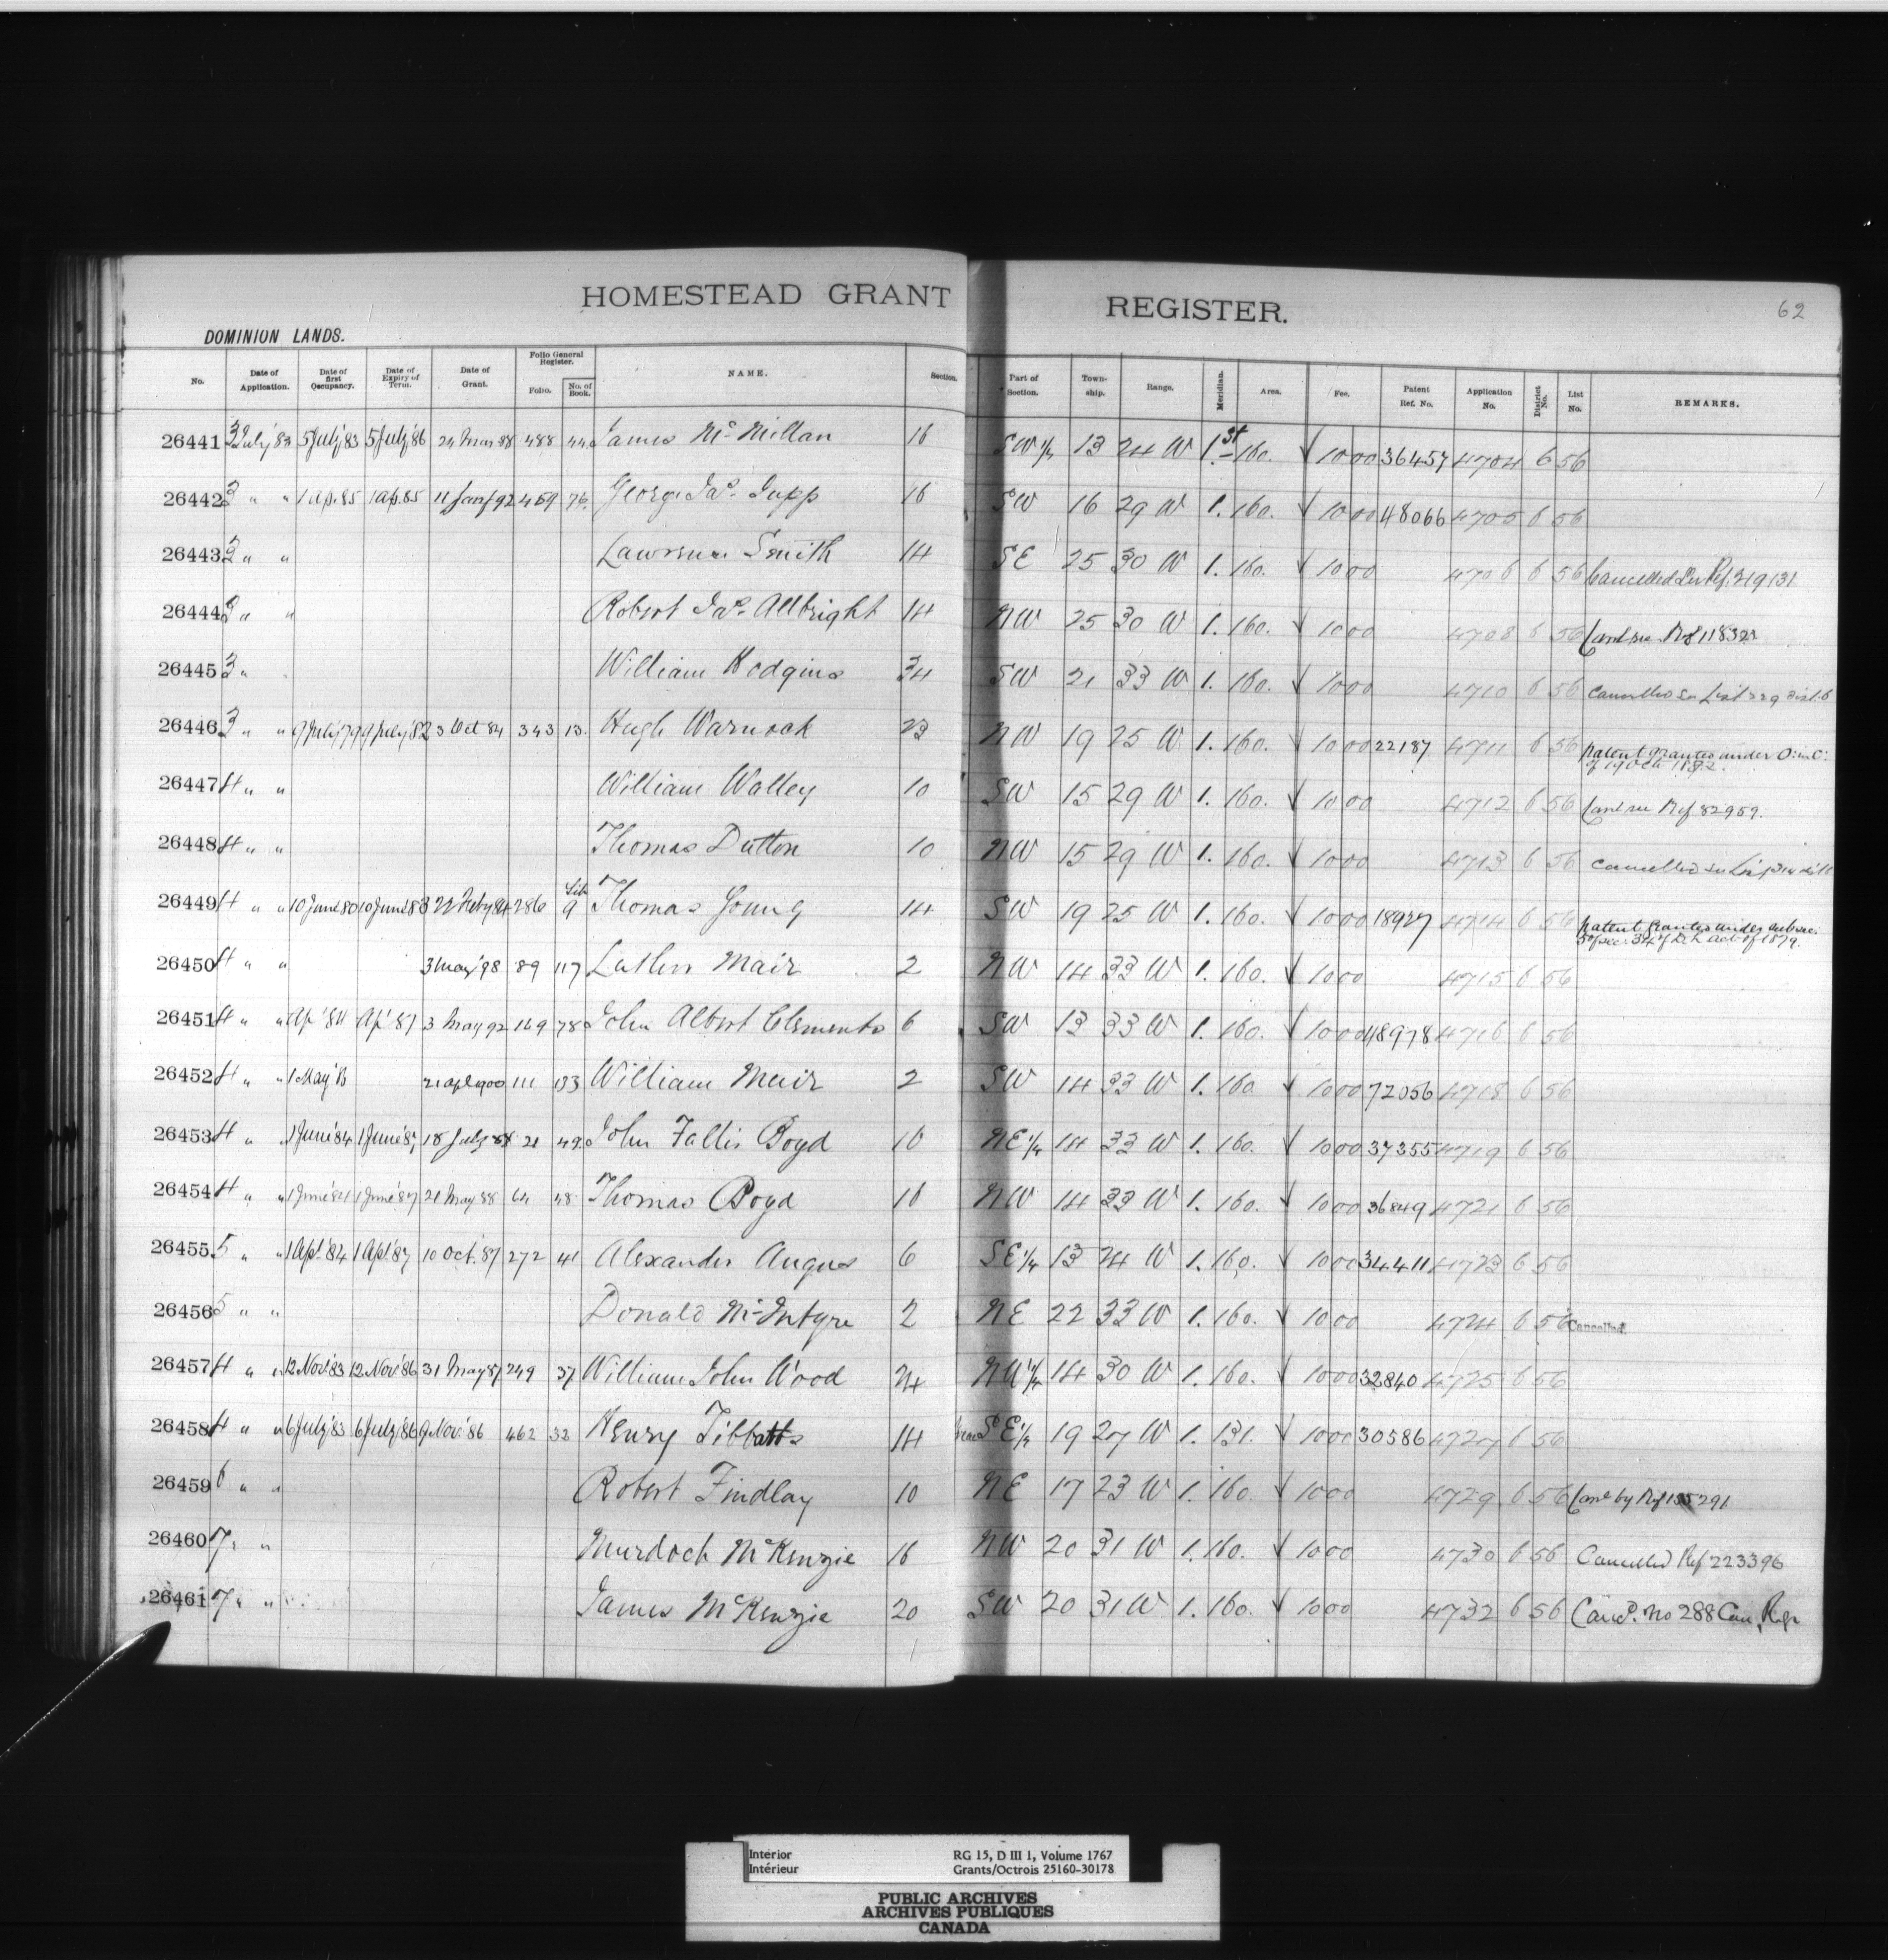 HOMESTEAD GRANT REGISTER. 62
DOMINION LANDS.
No. Date of Application. Date of first Occupancy. Date of Expiry of Term. Date of Grant. Folio General Register. Folio. No. of Book. NAME. Section. Part of Section. Township. Range. Meridian. Area. Fee. Patent Ref. No. Application No. District No. List No. REMARKS.
26441 3 July '83 5 July '83 5 July '86 24 Mar 88 488 44 James McMillan 16 SW 1/4 13 24 W 1st 160. √ 10 00 36457 4704 6 56
26442 3 " " 1 Ap. 85 1 Ap. 85 11 Jany 92 459 76. George Jas. Jupp 16 SW 16 29 W 1. 160. √ 10 00 48066 4705 6 56
26443 3 " " Lawrence Smith 14 SE 25 30 W 1. 160. √ 10 00 4706 6 56 Cancelled See Ref. 219131
26444 3 " " Robert Jas. Allbright 14 NW 25 30 W 1. 160. √ 10 00 4708 6 56
26445 3 " William Hodgins 34 SW 21 33 W 1. 160. √ 10 00 4710 6 56 Cancelled See List 329 Dist. 6
26446 3 " " 9 July '79 9 July '82 3 Oct 84 343 13. Hugh Warnock 23 NW 19 25 W 1. 160. √ 10 00 22187 4711 6 56 Patent granted under O. in C. of 19 Oct 1882.
26447 4 " " William Walley 10 SW 15 29 W 1. 160. √ 10 00 4712 6 56 Canl see Ref 82959.
26448 4 " " Thomas Dutton 10 NW 15 29 W 1. 160. √ 10 00 4713 6 56 Cancelled See
26449 4 " " 10 June 80 10 June 83 22 Feby 84 286 Lib 9 Thomas Young 14 SW 19 25 W 1. 160. √ 10 00 18927 4714 6 56 Patent granted under subsec. 5 of sec 34 of D. L. Act of 1879.
26450 4 " " 3 May '98 89 117 Mair 2 NW 14 33 W 1. 160. √ 10 00 4715 6 56
26451 4 " " Ap' 84 Ap' 87 3 May 92 149 78 John Albert Clements 6 SW 13 33 W 1. 160. √ 10 00 48978 4716 6 56
26452 4 " " 1 May '83 21 Apl 1900 111 133 William Muir 2 SW 14 33 W 1. 160 √ 10 00 72056 4718 6 56
26453 4 " " 1 June '84 1 June '87 18 July 88 21 49. John Fallis Boyd 16 NE 1/4 14 33 W 1. 160. √ 10 00 37355 4719 6 56
26454 4 " " 1 June '84 1 June '87 21 May 88 64 48 Thomas Boyd 16 NW 14 33 W 1. 160. √ 10 00 36849 4721 6 56
26455 5 " " 1 Apl. '84 1 Apl. '87 10 Oct. '87 272 41 Alexander Angus 6 SE 1/4 13 24 W 1. 160. √ 10 00 34411 4723 6 56
26456 5 " " Donald McIntyre 2 NE 22 33 W 1. 160. √ 10 00 4724 6 56 Cancelled.
26457 4 " " 12 Nov. '83 12 Nov. '86 31 May 87 249 37 William John Wood 24 NW 1/4 14 30 W 1. 160. √ 10 00 32840 4725 6 56
26458 4 " " 6 July '83 6 July '86 9 Nov. '86 462 32 Henry Tibbatts 14 SE 1/4 19 27 W 1. 131. √ 10 00 30586 4727 6 56
26459 6 " " Robert Findlay 10 NE 17 23 W 1. 160. √ 10 00 4729 6 56 Canl by Ref 155291
26460 7 " " Murdoch McKenzie 16 NW 20 31 W 1. 160. √ 10 00 4730 6 56 Cancelled Ref 223396
26461 7 " " James McKenzie 20 SW 20 31 W 1. 160. √ 10 00 4732 6 56 Canc'd. No 288 Can. Regr
Interior RG 15, D III 1, Volume 1767
Intérieur Grants/Octrois 25160-30178
PUBLIC ARCHIVES
ARCHIVES PUBLIQUES
CANADA